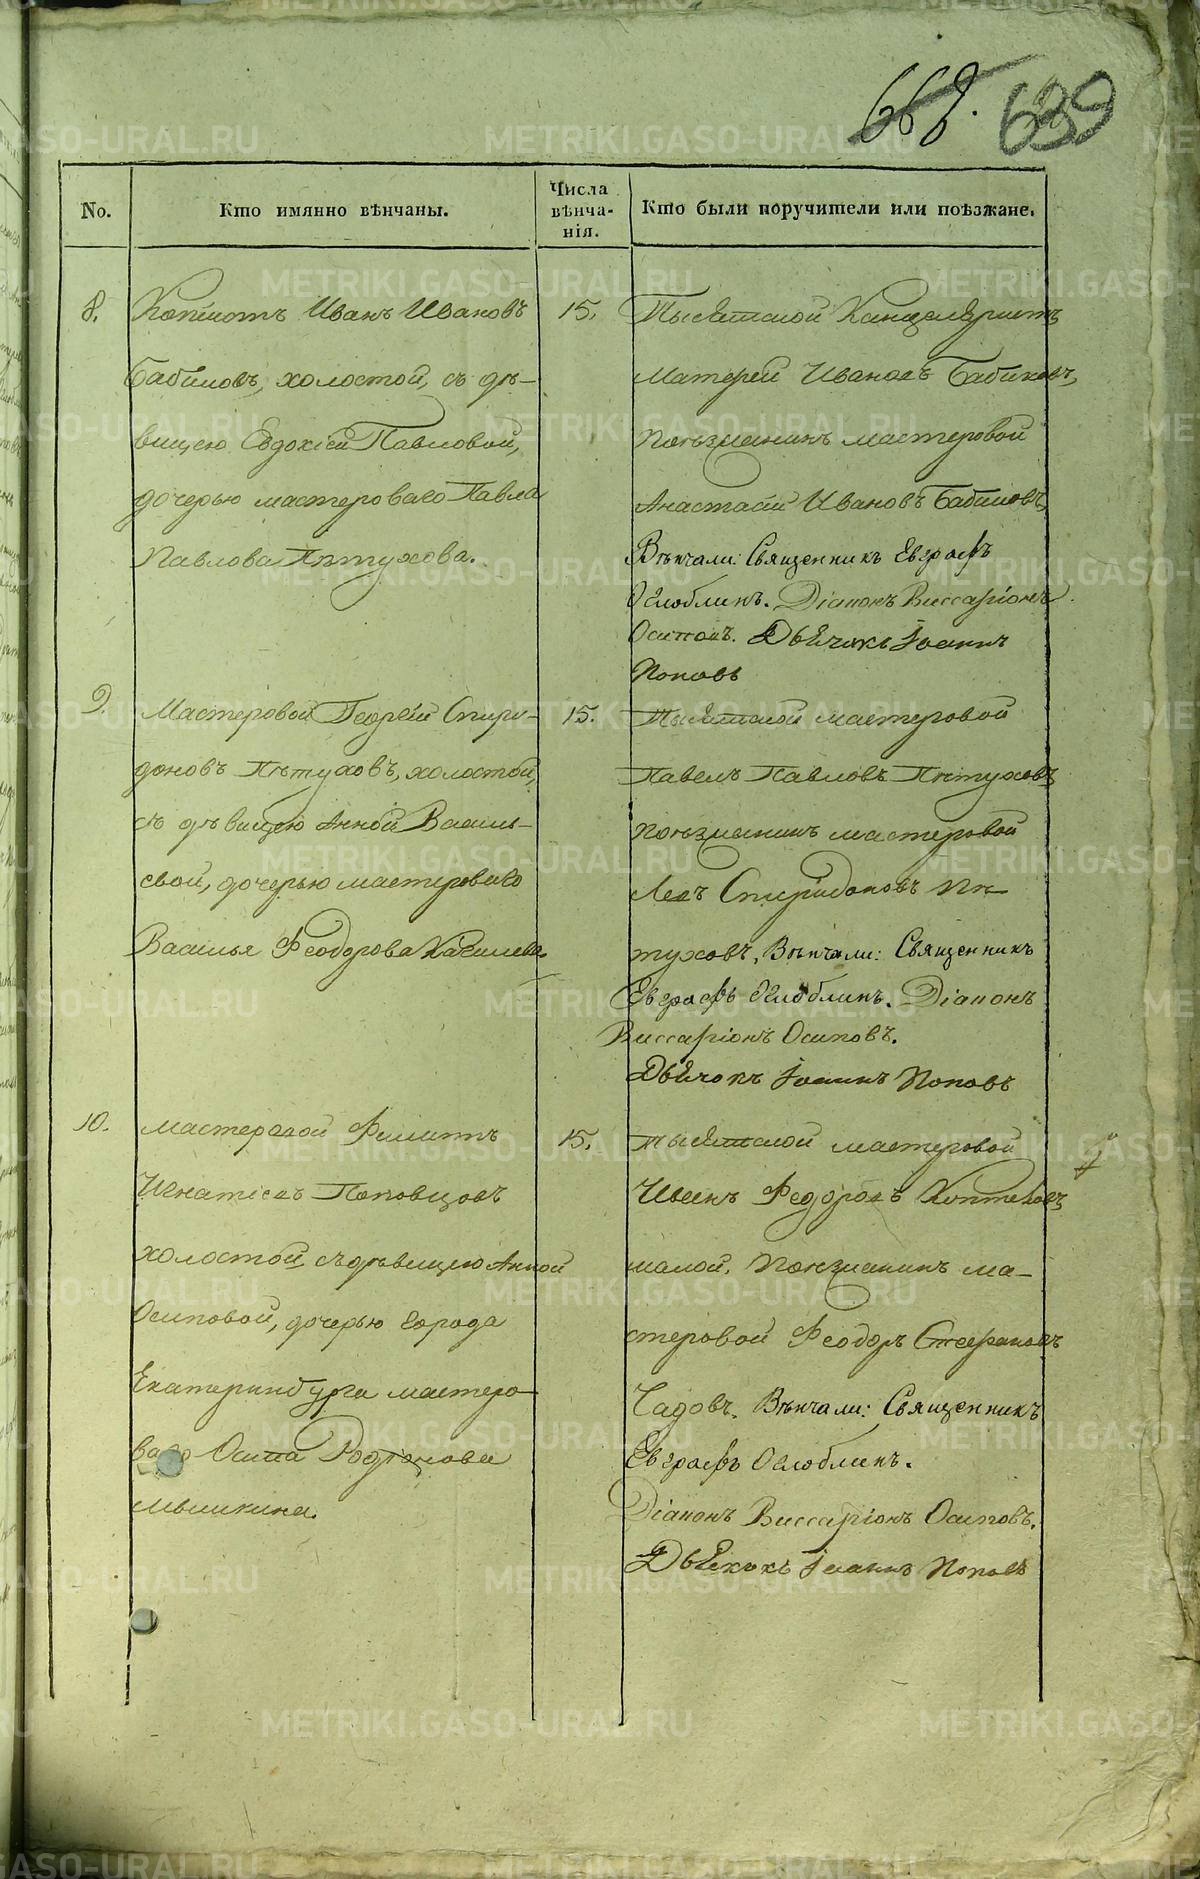 668. 639
No.
Кто имянно вѣнчаны.
Числа
вѣнча-
нія.
Кто были поручители или поѣзжане.
8.
Копіистъ Иванъ Ивановъ
Бабиковъ, холостой, съ дѣ-
вицею Евдокіей Павловой,
дочерью мастероваго Павла
Павлова Пѣтухова.
15.
Тысяцкой Канцеляристъ
Ивановъ Бабиковъ,
поѣзжанинъ мастеровой
Анастасій Ивановъ Бабиковъ,
Вѣнчали: Священникъ Евграфъ
Оглоблинъ. Діаконъ Виссаріонъ
Осиповъ. Дьячокъ Іоаннъ
Поповъ
9.
Мастеровой Георгій Спири-
доновъ Пѣтуховъ, холостой,
съ дѣвицею Анной Василь-
евой, дочерью мастероваго
Василья Феодорова
15.
Тысяцкой мастеровой
Павелъ Павловъ Пѣтуховъ
поѣзжанинъ мастеровой
Левъ Спиридоновъ Пѣ-
туховъ, Вѣнчали: Священникъ
Евграфъ Оглоблинъ. Діаконъ
Виссаріонъ Осиповъ.
Дьячокъ Іоаннъ Поповъ
10.
Мастеровой Филиппъ
Игнатьевъ
холостой, съ дѣвицею Анной
Осиповой, дочерью города
Екатеринбурга мастеро-
ваго Осипа Родіонова
Мышкина.
15.
Тысяцкой мастеровой
Иванъ Федоровъ
малой, Поѣзжанинъ ма-
стеровой Феодоръ Стефановъ
Чадовъ. Вѣнчали: Священникъ
Евграфъ Оглоблинъ.
Діаконъ Виссаріонъ Осиповъ.
Дьячокъ Іоаннъ Поповъ
METRIKI.GASO-URAL.RU